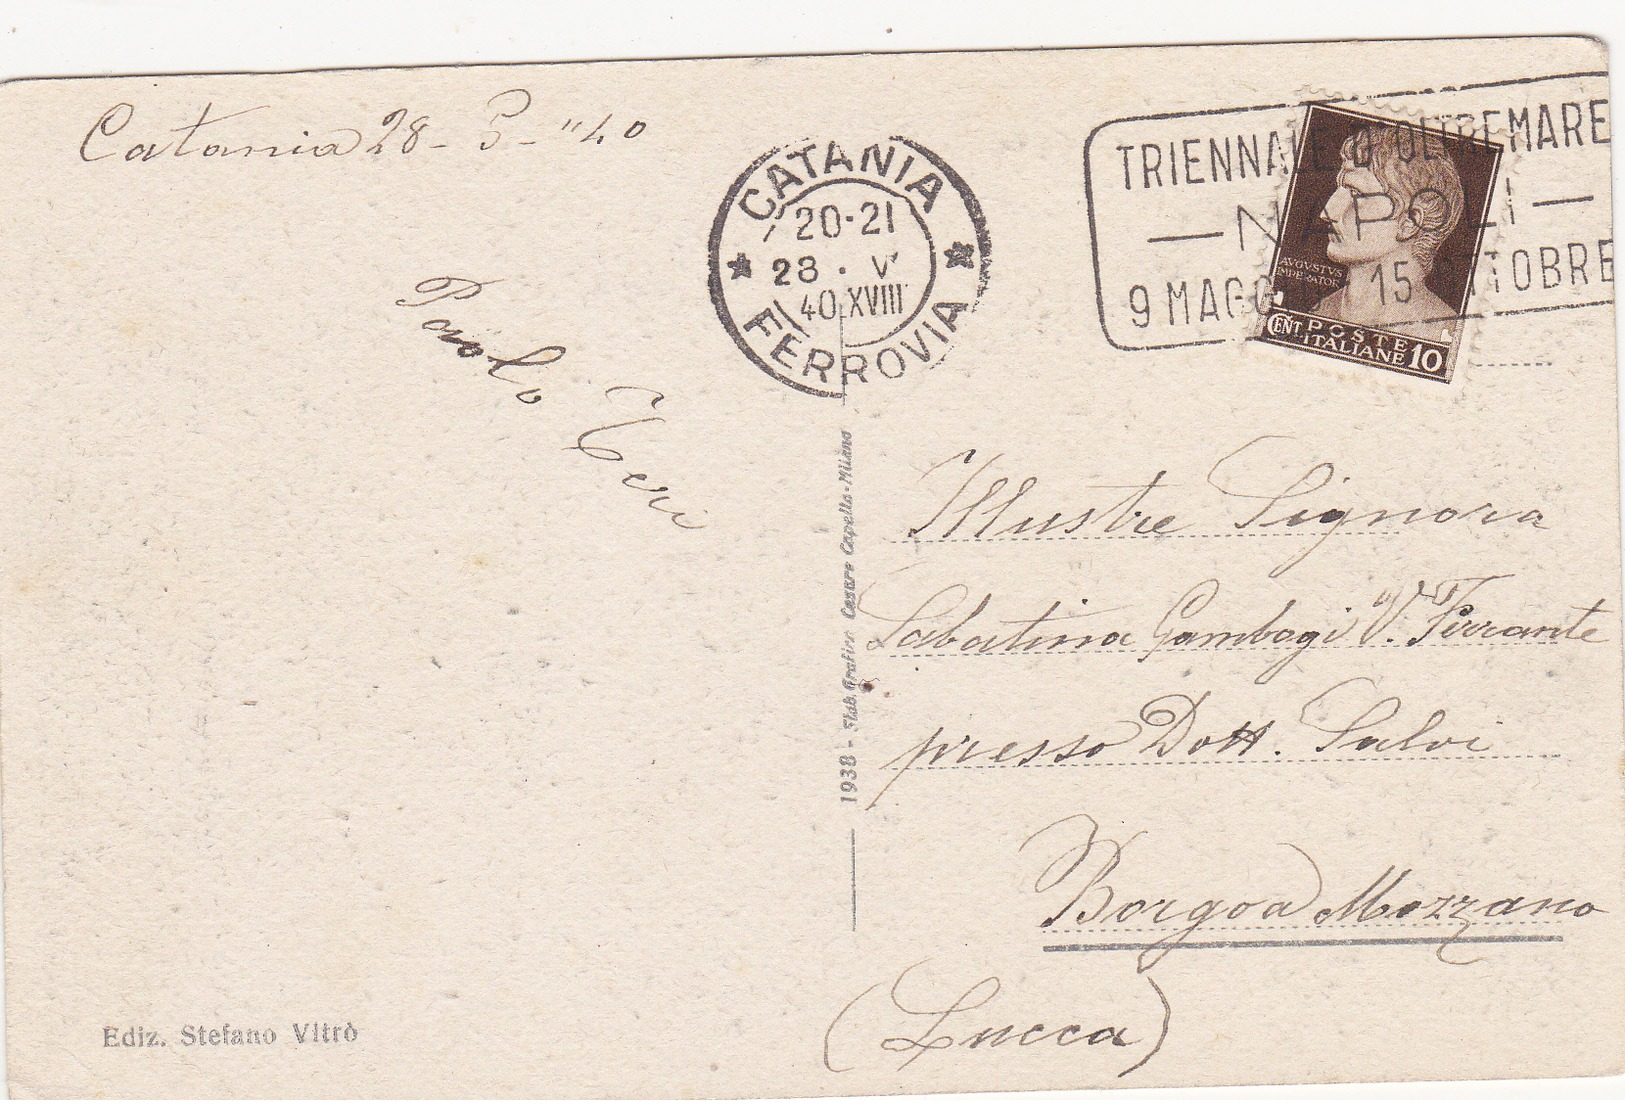 Catania 28-5-"40
CATANIA
20-21
28 . V
40.XVIII
FERROVIA
TRIENNALE D'OLTREMARE
— NAPOLI —
9 MAGGIO 15 OTTOBRE
AVGVSTVS
IMPERATOR
CENT POSTE
ITALIANE 10
Paolo
Illustre Signora
Sabatina Gambogi V. Ferrante
presso Dott. Salvi
Borgo a Mozzano
(Lucca)
1938 - Stab. Grafico Cesare Capello - Milano
Ediz. Stefano Vitrò